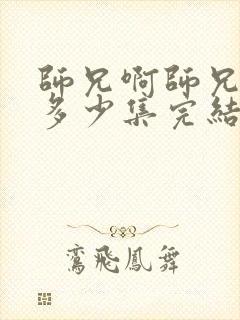 師兄啊師兄
多少集完結
鸞飛鳳舞